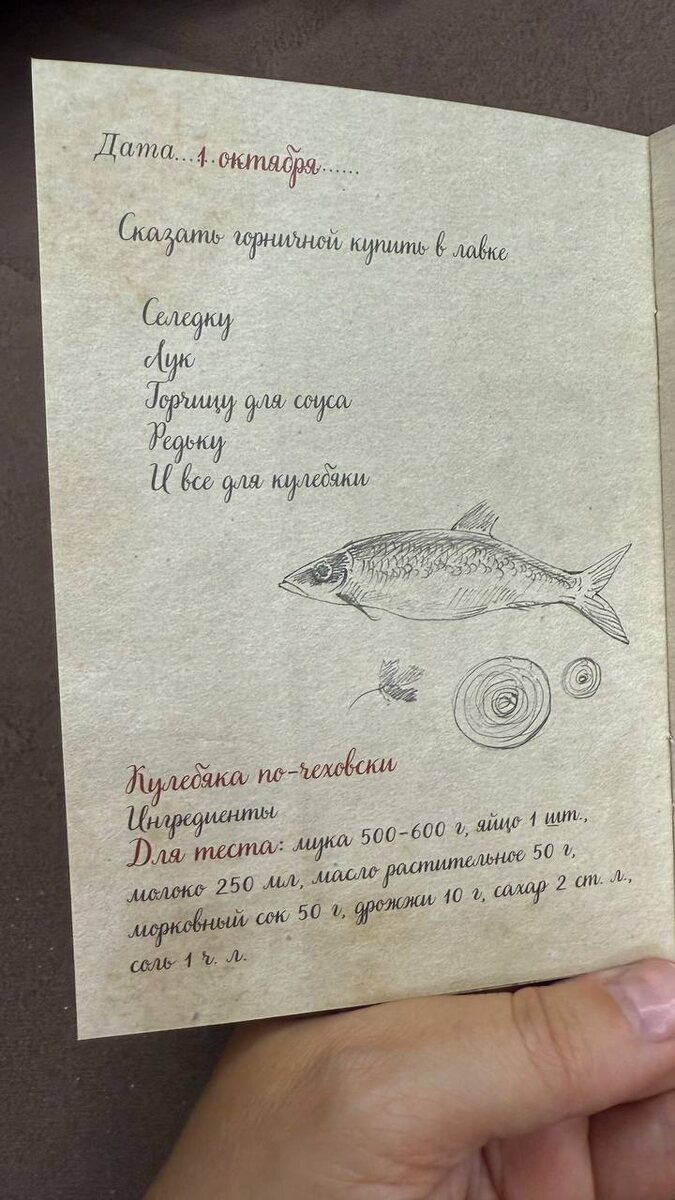 Дата.....1 октября......
Сказать горничной купить в лавке
Селедку
Лук
Горчицу для соуса
Редьку
И все для кулебяки
Кулебяка по-чеховски
Ингредиенты
Для теста: мука 500-600 г, яйцо 1 шт.,
молоко 250 мл, масло растительное 50 г,
морковный сок 50 г, дрожжи 10 г, сахар 2 ст. л.,
соль 1 ч. л.